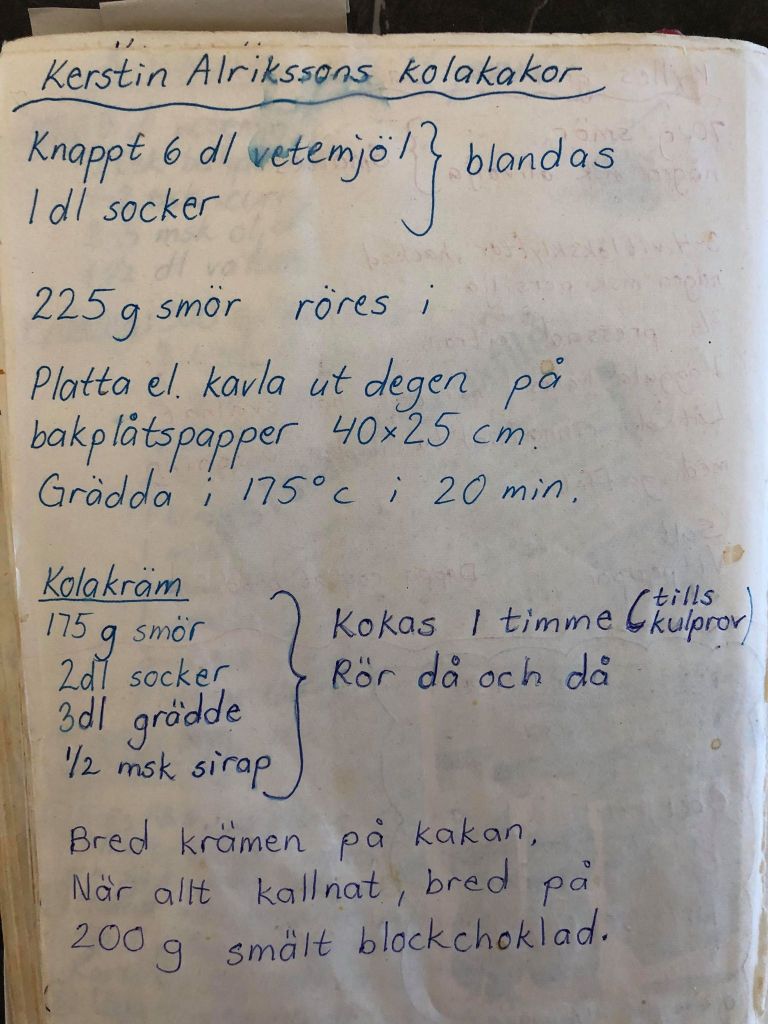 Kerstin Alrikssons kolakakor
Knappt 6 dl vetemjöl } blandas
1 dl socker
225 g smör röres i
Platta el. kavla ut degen på
bakplåtspapper 40×25 cm.
Grädda i 175°c i 20 min.
Kolakräm
175 g smör
2dl socker
3dl grädde
1/2 msk sirap
Kokas 1 timme (tills kulprov)
Rör då och då
Bred krämen på kakan.
När allt kallnat, bred på
200 g smält blockchoklad.